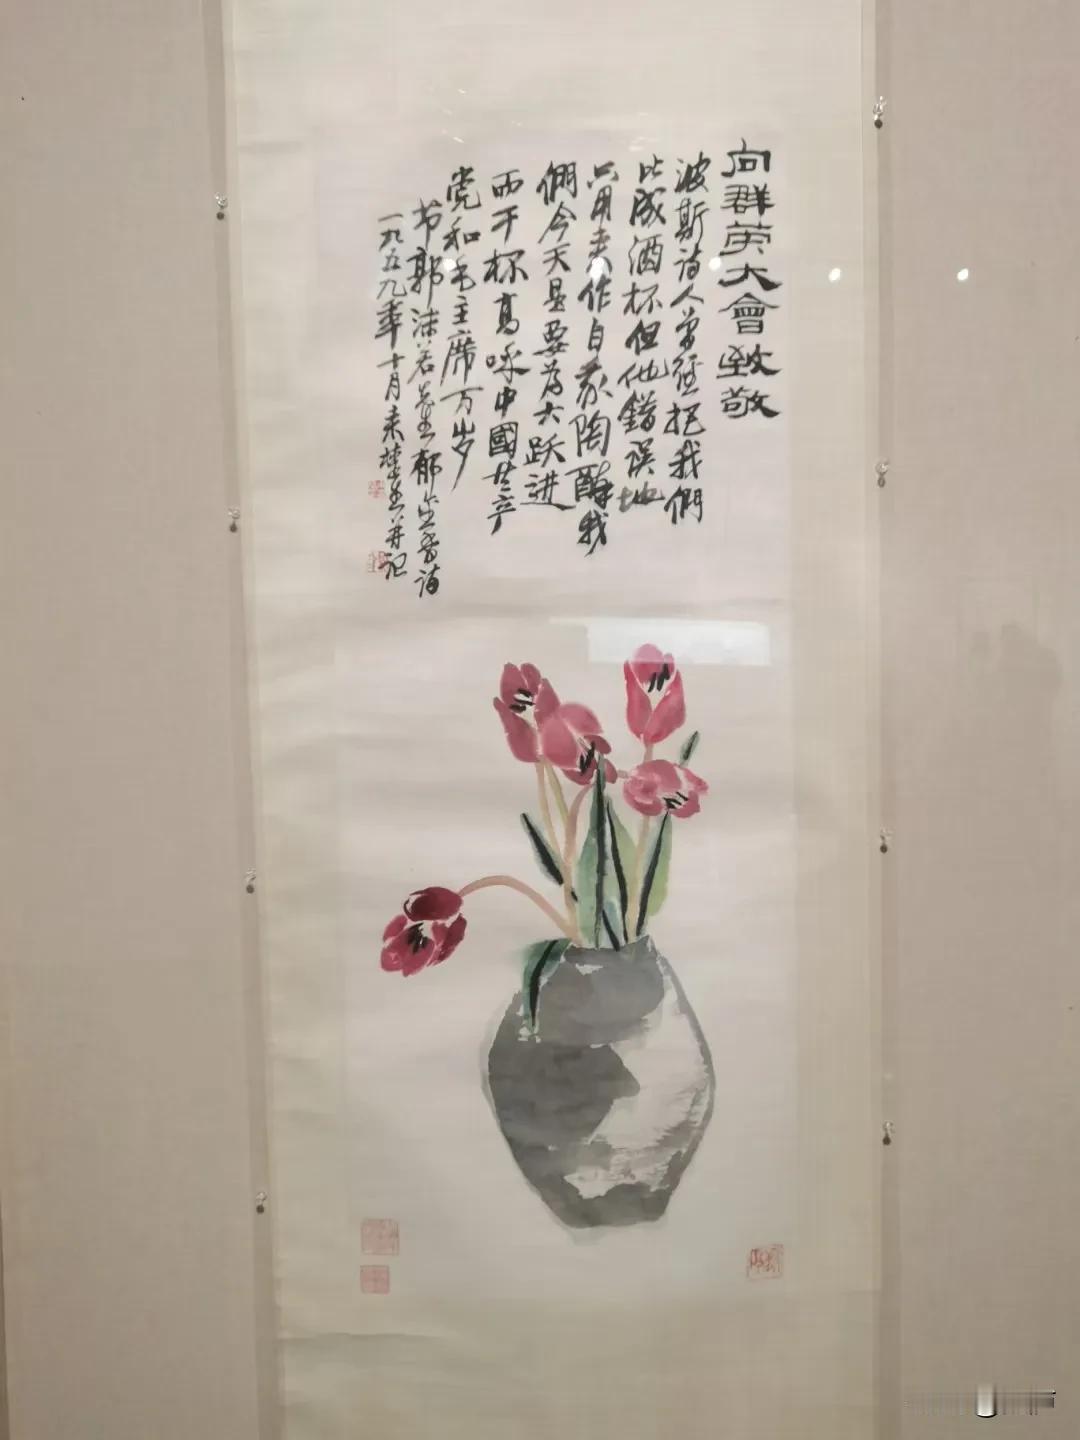 向群英大會致敬
波斯诗人曾经把我們
比成酒杯但他錯误地
只用来作自家陶醉我
們今天是要为大跃进
而干杯高呼中國共产
党和毛主席万岁
节郭沫若先生郁金香诗
一九五九年十月来楚生并记